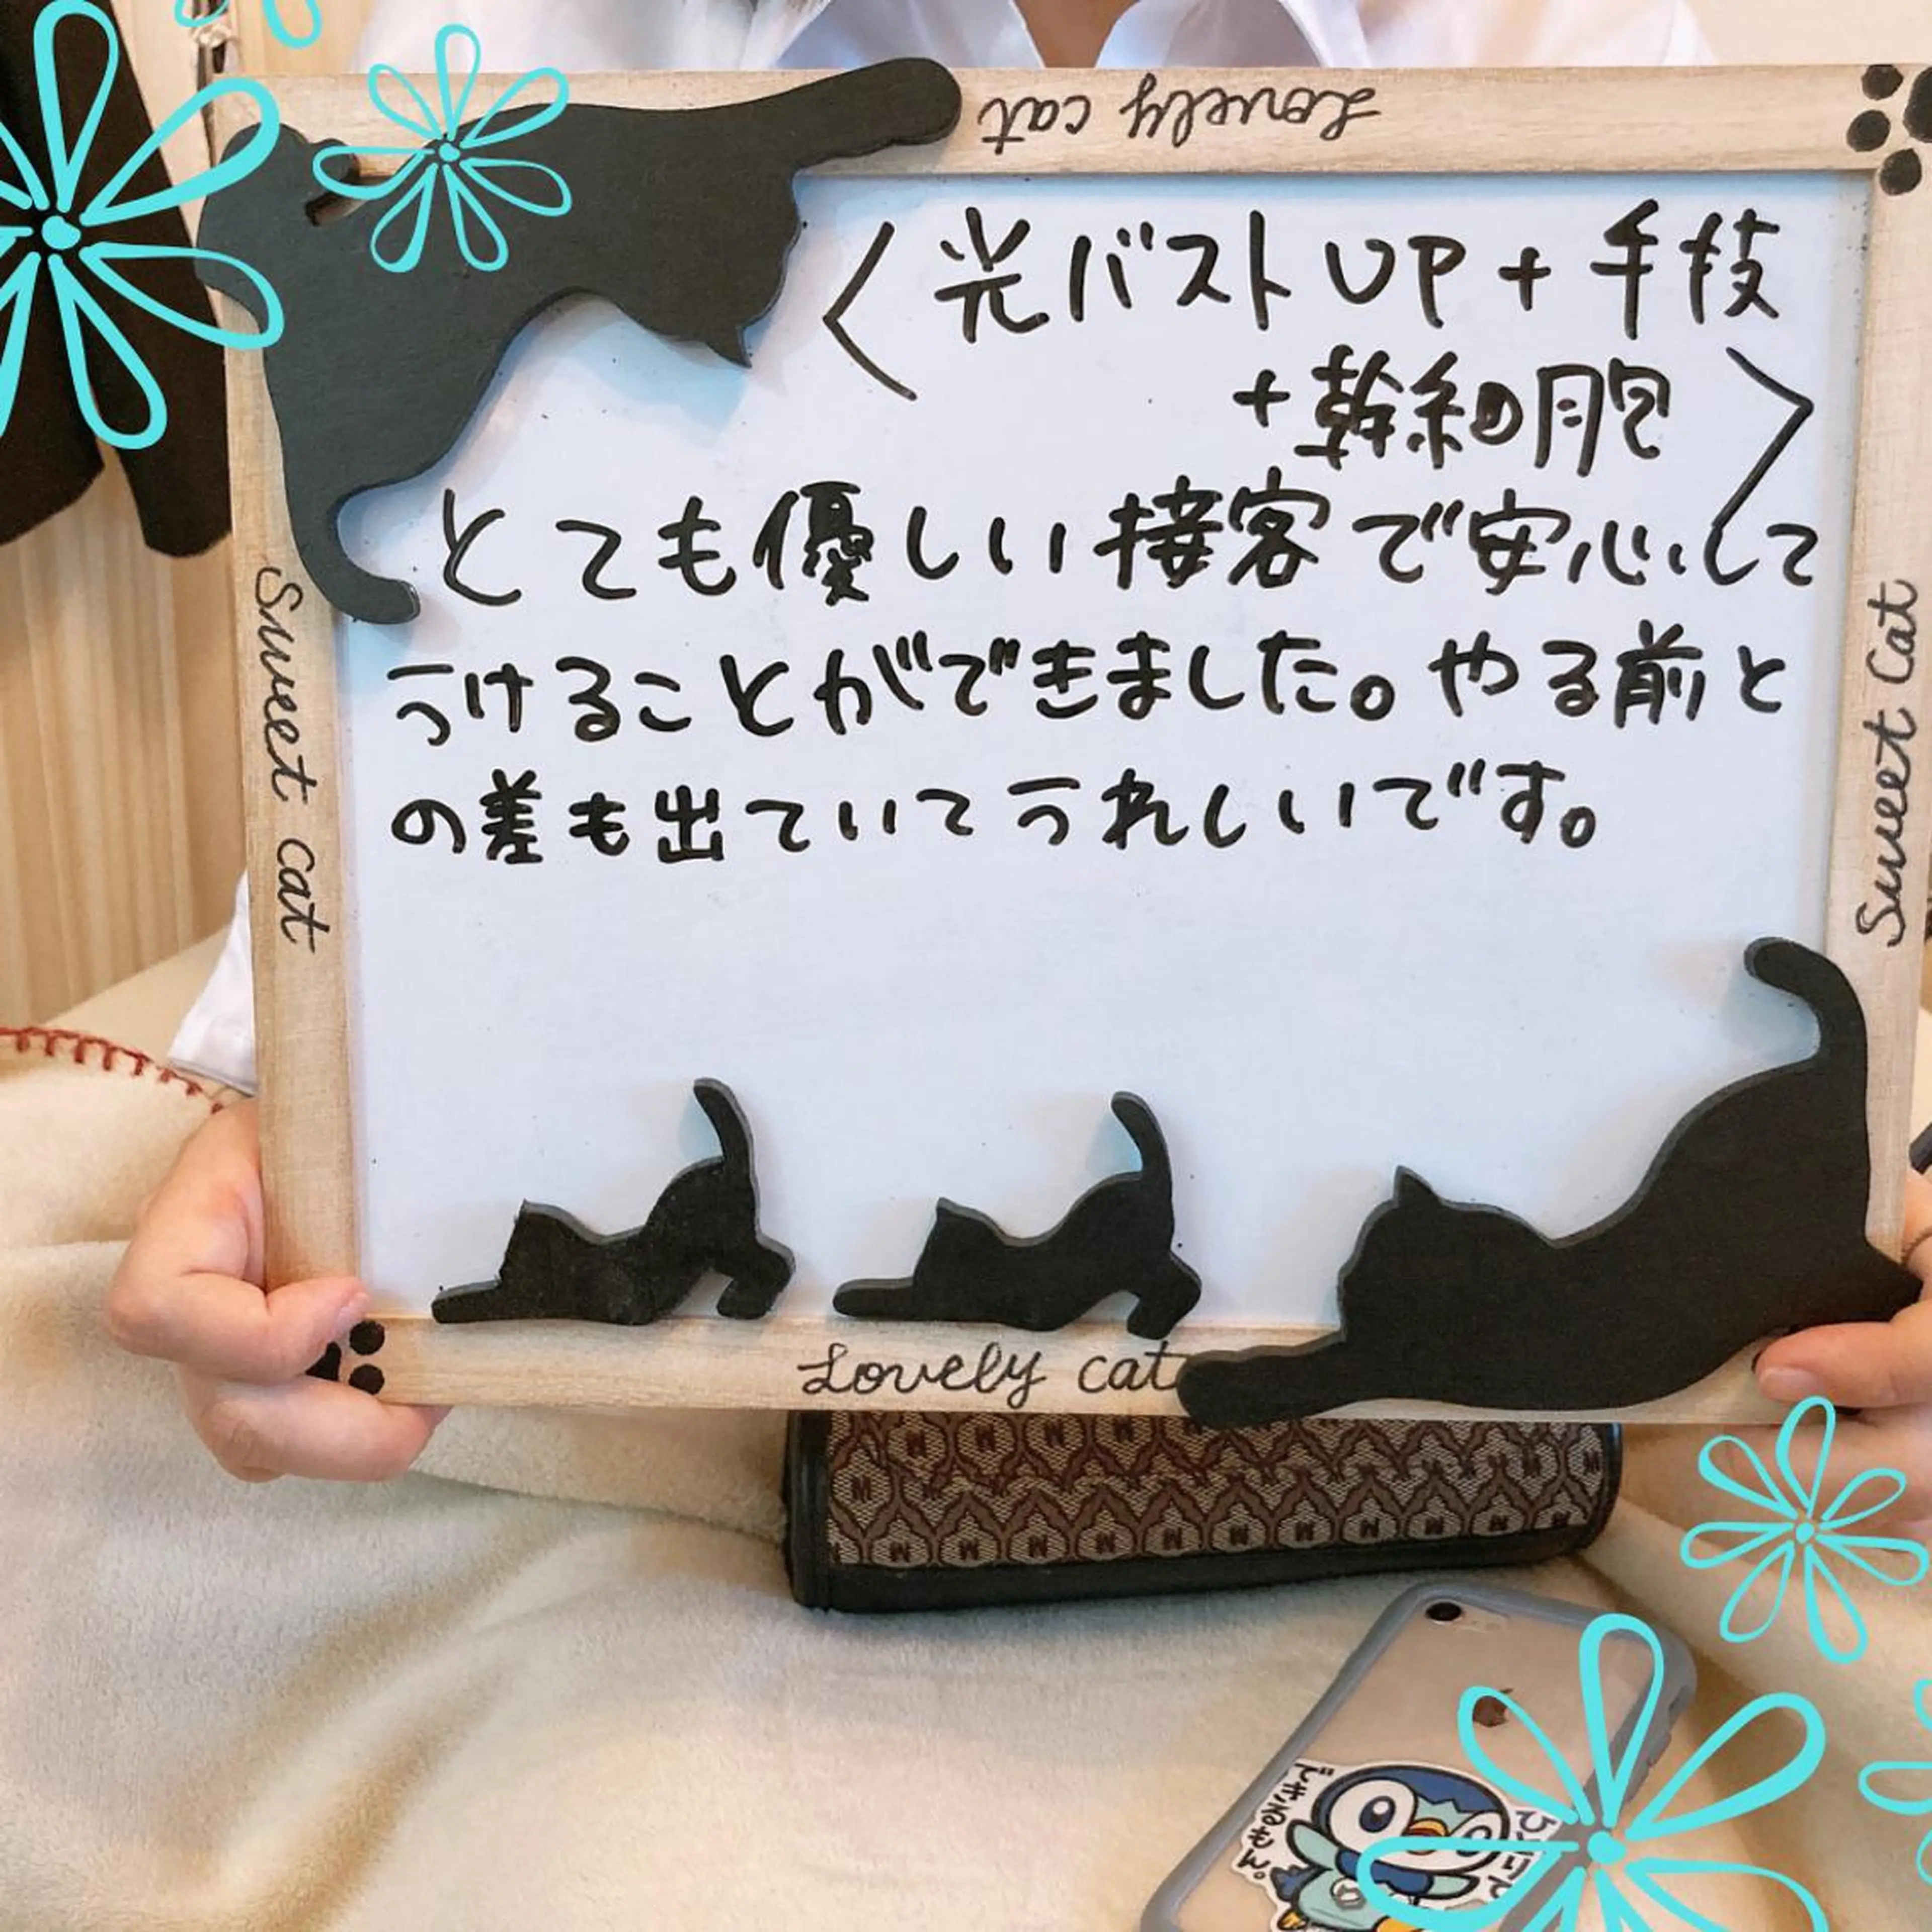 Lovely cat
〈光バストUP+手技
+幹細胞〉
とても優しい接客で安心して
うけることができました。やる前と
の差も出ていてうれしいです。
Sweet cat
Sweet Cat
Lovely cat
できるもん。